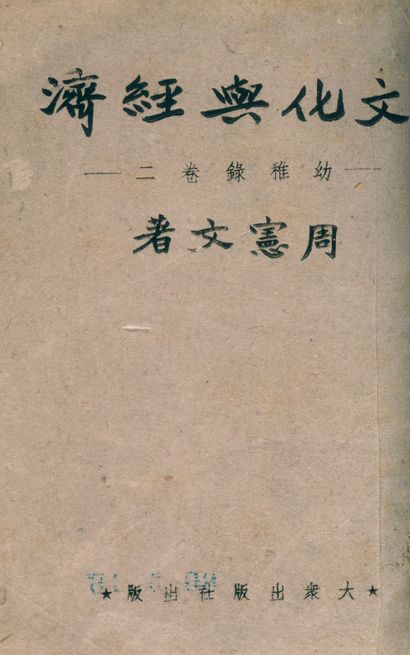 文化與經濟
——幼稚錄卷二——
周憲文著
★大衆出版社出版★